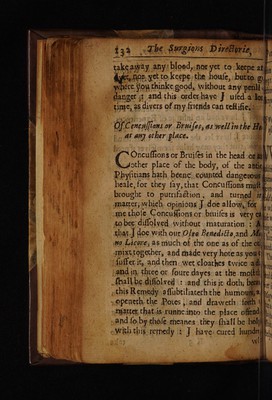 132 The Surgions Directorie,
take away any blood, nor yet to keepe at
dyet, nor yet to keepe the house, but to go
where you thinke good, without any perill
danger; and this order have J used a long
time, as divers of my friends can testifie.
Of Concussions or Bruises, as well in the He
at any other place.
COncussions or Bruises in the head or a
other place of the body, of the
Physitians hath beene counted dangerous
heale, for they say, that Concussions must
brought to putrifaction, and turned in
matter, which opinions J doe allow, for
me those Concussions or bruises is very ea
to bee dissolved without maturation: A
that J doe with our Oleo Benedicto, and Ma
no Licore, as much of the one as of the ot
mixt together, and made very hote as you
suffer it, and then wet cloathes twice a d
and in three or foure dayes at the most it
shall be dissolved: and this it doth, because
this Remedy assubtiliateth the humours, a
openeth the Pores, and draweth forth
matter that is runne into the place offend
and so by those meanes they shall be hel
with this remedy: J have cured hundre